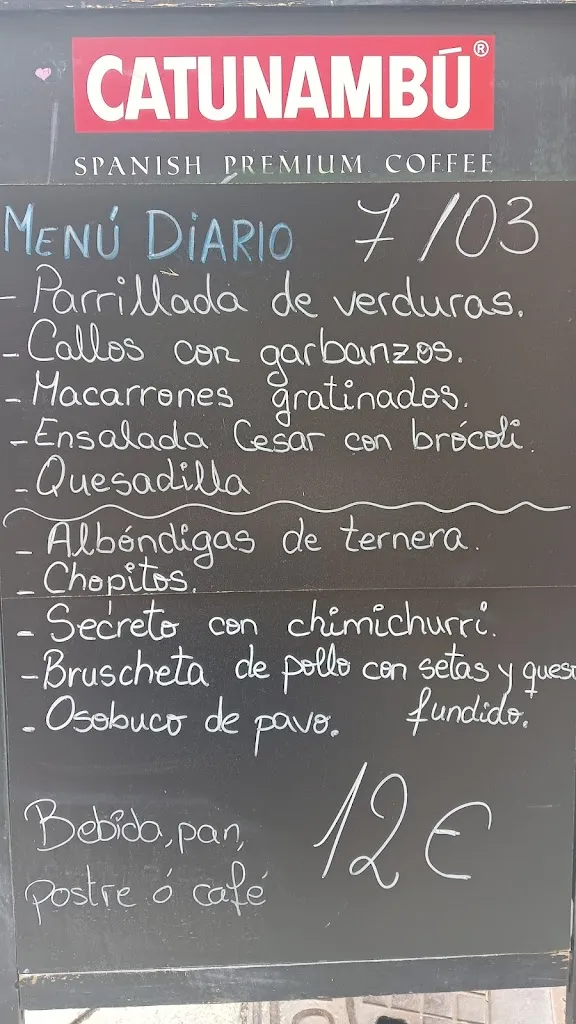 CATUNAMBÚ®
SPANISH PREMIUM COFFEE
MENÚ DIARIO 7/03
- Parrillada de verduras.
- Callos con garbanzos.
- Macarrones gratinados.
- Ensalada Cesar con brócoli.
- Quesadilla
- Albóndigas de ternera.
- Chopitos.
- Secreto con chimichurri.
- Bruscheta de pollo con setas y queso
- Osobuco de pavo. fundido.
Bebida, pan, 12€
postre ó café